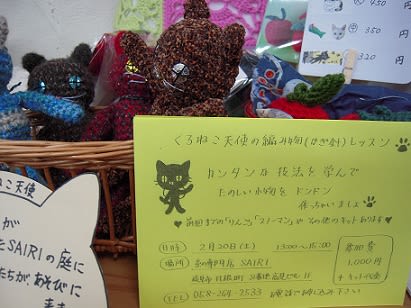 ¥ 450
¥ 350
¥ 320
くろねこ天使の編み物(かぎ針)レッスン
カンタンな技法を学んで
たのしい小物をドンドン
作っちゃいましょ
前回までの「りんご」「スノーマン」や その他のキットあります
日時 2月20日(土) 13:00〜15:00
場所
参加費
1,000円
+キット代金
TEL 058-264-2533 までお申し込み下さい
ねこ天使
が
たSAIRIの庭に
たちが、あそびに